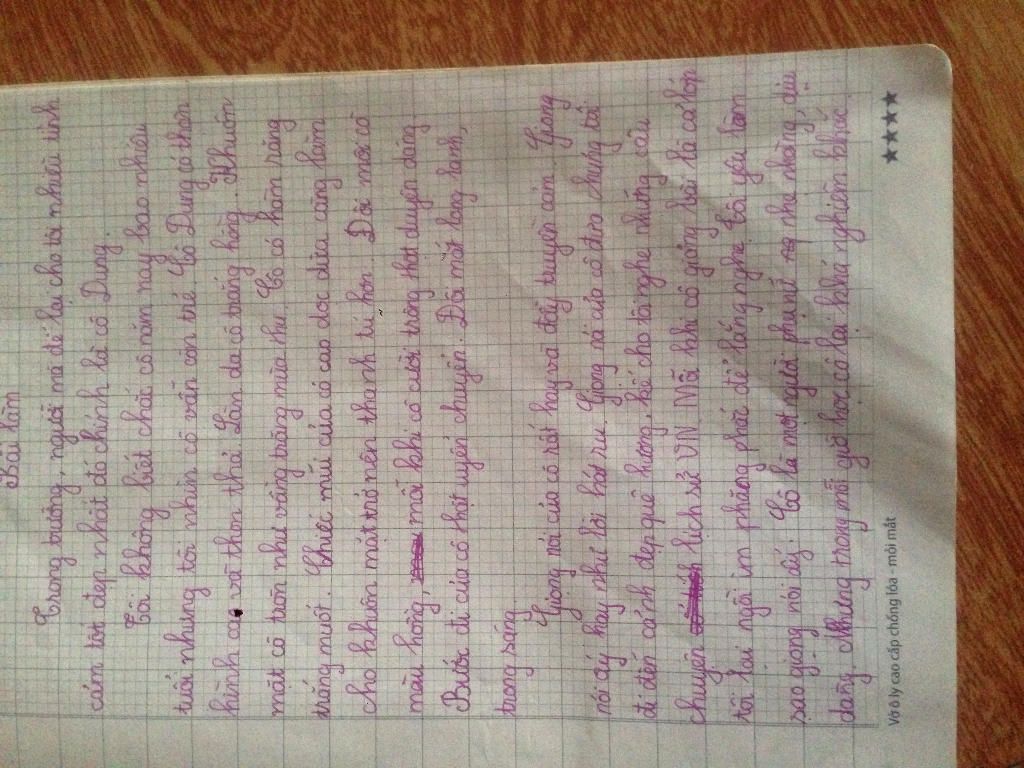 Bài làm
Trong trường, người mà để lại cho tôi nhiều tình
cảm tốt đẹp nhất đó chính là cô Dung.
Tôi không biết chắc cô năm nay bao nhiêu
tuổi nhưng tôi nhìn cô vẫn còn trẻ. Cô Dung có thân
hình cao và thon thả. Làn da cô trắng hồng. Khuôn
mặt cô tròn như vầng trăng mùa thu. Cô có hàm răng
trắng muốt. Chiếc mũi của cô cao dọc dừa càng làm
cho khuôn mặt trở nên thanh tú hơn. Đôi môi cô
màu hồng, mỗi khi cô cười trông thật duyên dáng.
Bước đi của cô thật uyển chuyển. Đôi mắt long lanh,
trong sáng.
Giọng nói của cô rất hay và đầy truyền cảm. Giọng
nói ấy hay như lời hát ru. Giọng nói của cô đưa chúng tôi
đi đến cảnh đẹp quê hương, kể cho tôi nghe những câu
chuyện lịch sử VN. Mỗi khi cô giảng bài là cả lớp
tôi lại ngồi im phăng phắc để lắng nghe. Cô yêu làm
sao giọng nói ấy! Cô là một người phụ nữ nhẹ nhàng, dịu
dàng. Nhưng trong mỗi giờ học cô lại khá nghiêm khắc.
Vở ô ly cao cấp chống lóa - mỏi mắt
★★★★